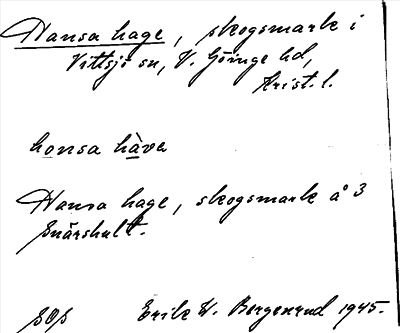 Hansa hage, skogsmark i
Vittsjö sn, V. Göinge hd,
Krist. l.
honsa hàva
Hansa hage, skogsmark å 3
Snärshult.
SOS Erik W. Bergenrud 1945.